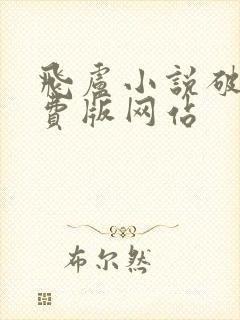 飛盧小説破
費版网佔
布尔然